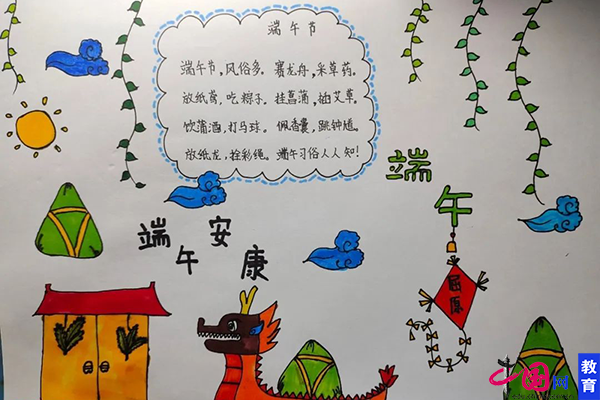 端午节
端午节，风俗多。赛龙舟，采草药。
放纸鸢，吃粽子。挂菖蒲，插艾草。
饮蒲酒，打马球。佩香囊，跳钟馗。
放纸龙，拴彩绳。端午习俗人人知！
端午
端午安康
屈原
中国网
教育